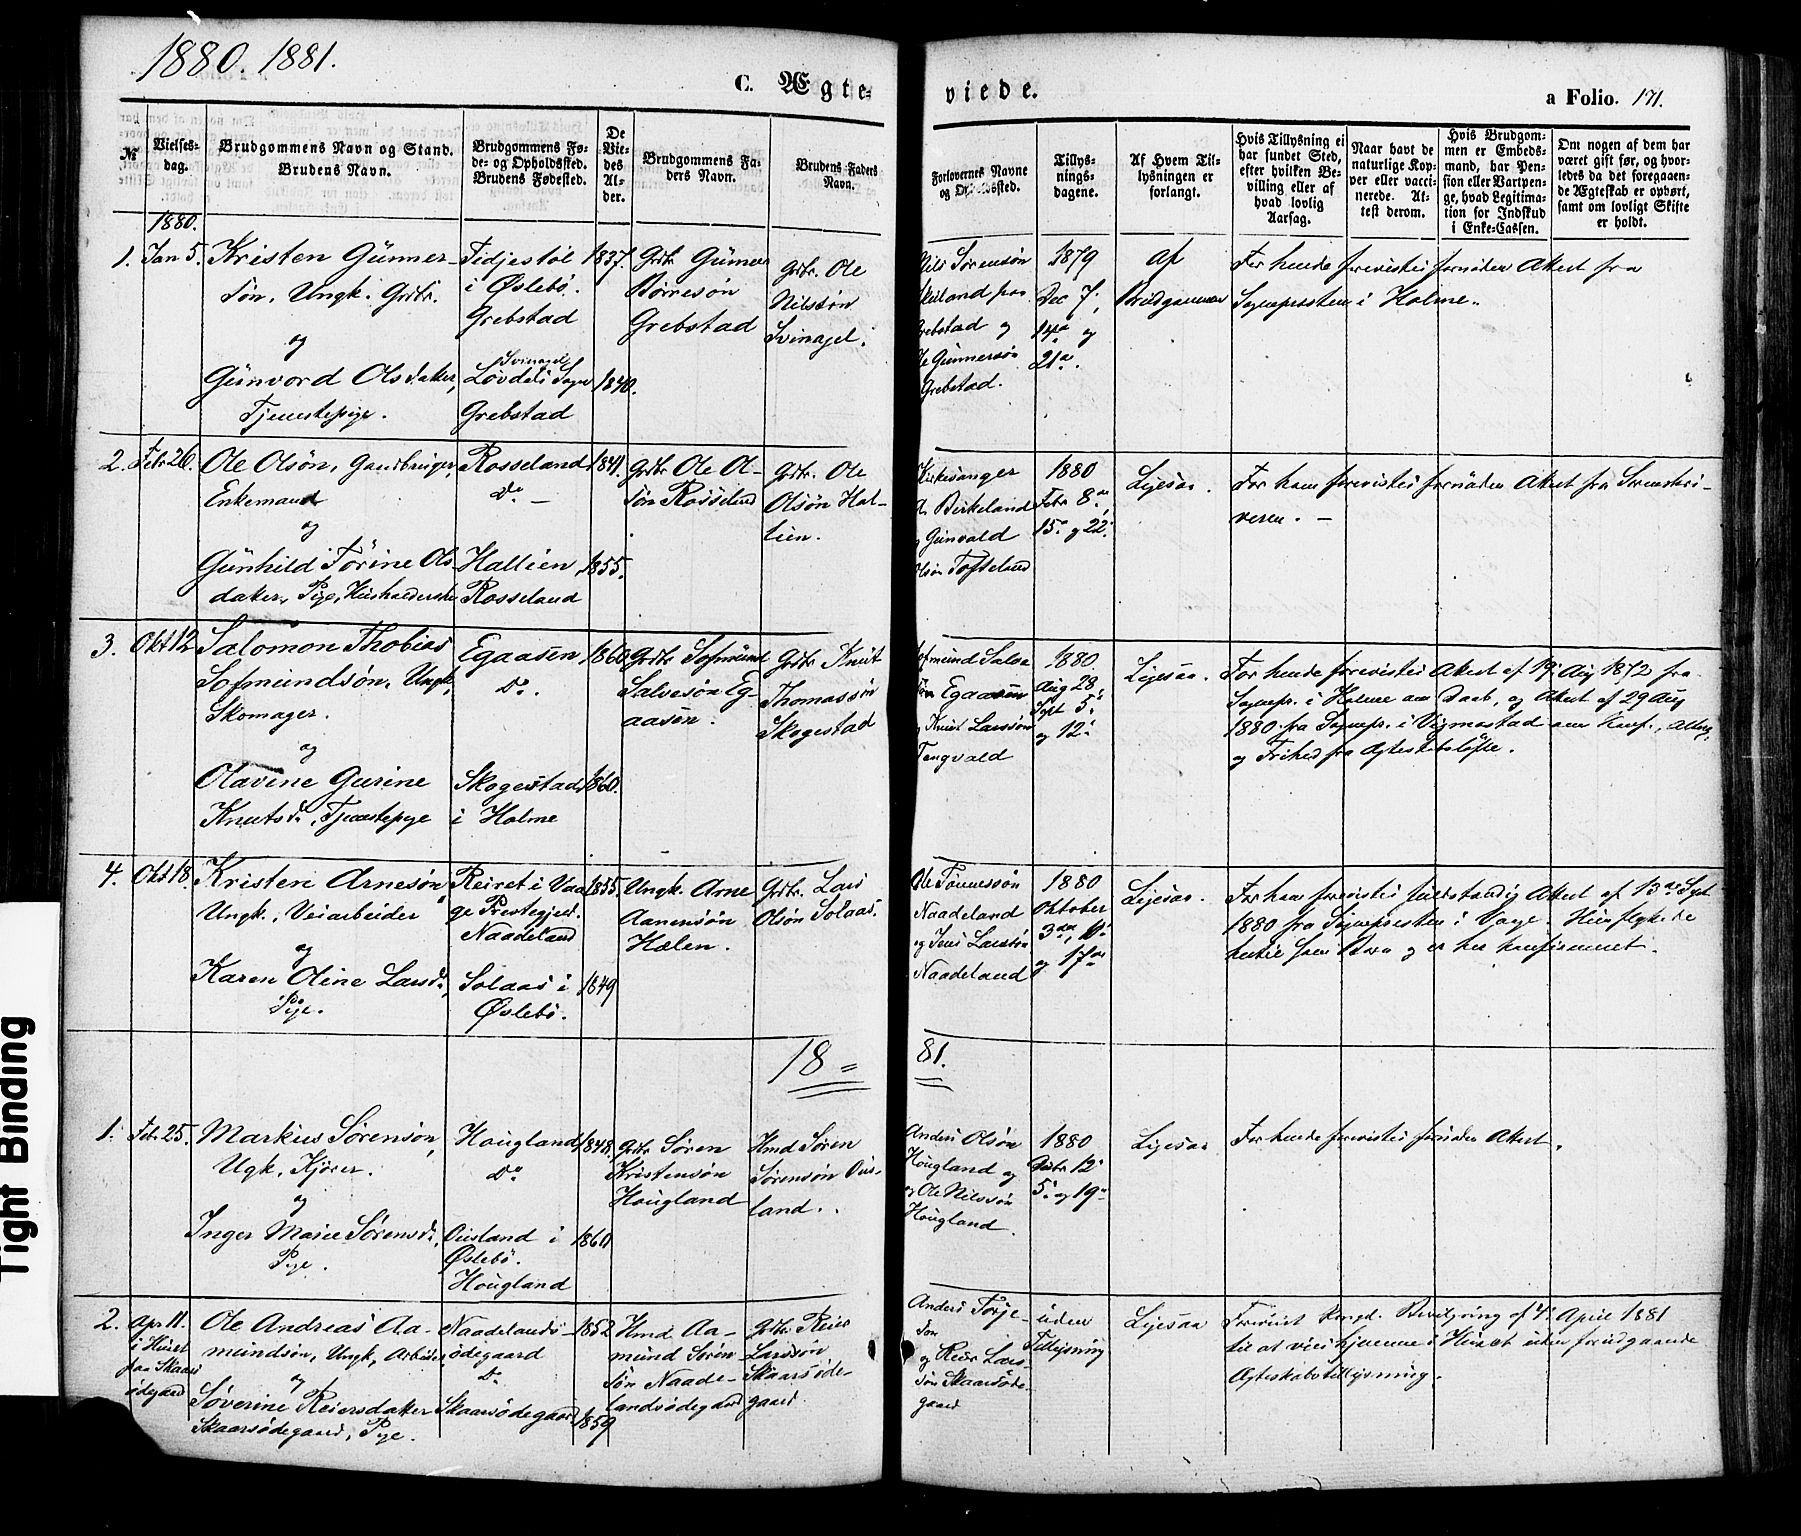 1880. 1881.
C. Ægte-
viede.
a Folio. 171.
№
Vielses-
dag.
Brudgommens Navn og Stand.
Brudens Navn.
Brudgommens Fø-
de- og Opholdssted.
Brudens Fødested.
De
Vie-
des
Al-
der.
Brudgommens Fa-
ders Navn.
Brudens Faders
Navn.
Forlovernes Navne
og Opholdssted.
Tillys-
nings-
dagene.
Af Hvem Til-
lysningen er
forlangt.
Hvis Tillysning ei
har fundet Sted,
efter hvilken Be-
villing eller af
hvad lovlig
Aarsag.
Naar havt de
naturlige Kop-
per eller vacci-
nerede. At-
test derom.
Hvis Brudgom-
men er Embeds-
mand, har Pen-
sion eller Vartpen-
ge, hvad Legitima-
tion for Indskud
i Enke-Cassen.
Om nogen af dem har
været gift før, og hvor-
ledes da det foregaaen-
de Ægteskab er ophørt,
samt om lovligt Skifte
er holdt.
1880.
1. Jan 5.
Kristen Gunner-
søn, Ungk. Grdbr.
og
Gunvord Olsdaker,
Tjenestepige.
Fidjestøl
i Øslebö.
Grebstad
Svinagel
Løvdels Sogn
Grebstad
1837.
1840.
Grdbr Gunner
Börresön
Grebstad
Grdbr. Ole
Nilssön
Svinagel.
Nils Sørensøn
Skeiland paa
Grebstad og
Ole Gunnersön
Grebstad.
1879
Dec 7,
14de og
21de.
Af
Brudgommen
For hende forevistes fornöden Attest fra
Sognepresten i Holme.
2. Febr 26.
Ole Olsön, Gaardbruger,
Enkemand
og
Gunhild Törine Ols
daker, Pige, Husholderske
Rosseland
Do –
Hallien
Rosseland
1841.
1855.
Grdbr Ole Ol-
sön Rosseland
Grdbr. Ole
Olsön Hal-
lien.
Kirkesanger
A. Birkeland
og Gunvald
Olsön Tofteland
1880
Febr 8de,
15de og 22de
Ligesaa.
For ham forevistes fornöden Attest fra Sorenskri-
veren. –
3. Okt 12
Salomon Thobias
Sofmundsön, Ungk,
Skomager.
og
Olavine Gurine
Knutsdr, Tjenestepige
Egaasen
Do.
Skogestad
i Holme
1860
1860.
Grdbr Sofmund
Salvesön Eg-
aasen.
Grdbr Knut
Thomassön
Skogestad
Sofmund Salve
sön Egaasen
og Knut Larssön
Tengvald
1880.
Aug 28.
Sept 5te
og 12te
Ligesaa.
For hende forevistes Attest af 19. Aug 1872 fra
Sognepr. i Holme om Daab, og Attest af 29 Aug
1880 fra Sognepr. i Vigmostad om Konf., Alterg.
og Frihed fra Ægteskabsløfte.
4. Okt 18.
Kristen Arnesön
Ungk., Veiarbeider
og
Karen Oline Larsdr,
Pige.
Reiret i Vaa
ge Prestegjeld.
Naadeland
Solaas i
Øslebö.
1855.
1849
Ungk. Arne
Aanensön
Hælen.
Grdbr. Lars
Olsön Solaas.
Ole Tönnessön
Naadeland
og Jens Larssön
Naadeland
1880
Oktober
3die, 10de
og 17de
Ligesaa.
For ham forevistes fuldstændig Attest af 13de Sept
1880 fra Sognepresten i Vaage. Hun flyttede
hertil som Barn og er her konfirmeret.
18=
81.
1. Febr 25.
Markus Sörensön,
Ugk, Kjörer.
og
Inger Marie Sörensdr,
Pige.
Hougland
Do
Ousland i
Øslebö.
Hougland
1848.
1860
Grdbr Sören
Kristensön
Hougland
Hmd Sören
Sörensön Ous-
land.
Anders Olsön
Hougland og
og Ole Nilssön
Hougland.
1880
Decbr 12te
5te og 19de
Ligesaa
For hende forevistes fornöden Attest.
2. Apr 11.
i Huset
paa Skaars
ödegaard
Ole Andreas Aa-
mundsön, Ungk, Arbeider
og
Söverine Reiersdaker
Skaarsödegaard, Pige.
Naadelands-
ödegaard
Do
Skaarsödegaard
1852
1859
Hmd Aa-
mund Sören-
sön Naade-
landsödegaard
Grdbr. Reier
Larssön
Skaarsöde-
gaard.
Anders Torje-
sön
og Reier Lars-
sön Skaarsöde-
gaard
uden
Tillysning
Ligesaa
Forevist Kongl. Bevilgning af 4. April 1881
til at vies hjemme i Huset uden forudgaaende
Ægteskabstillysning.
Tight Binding